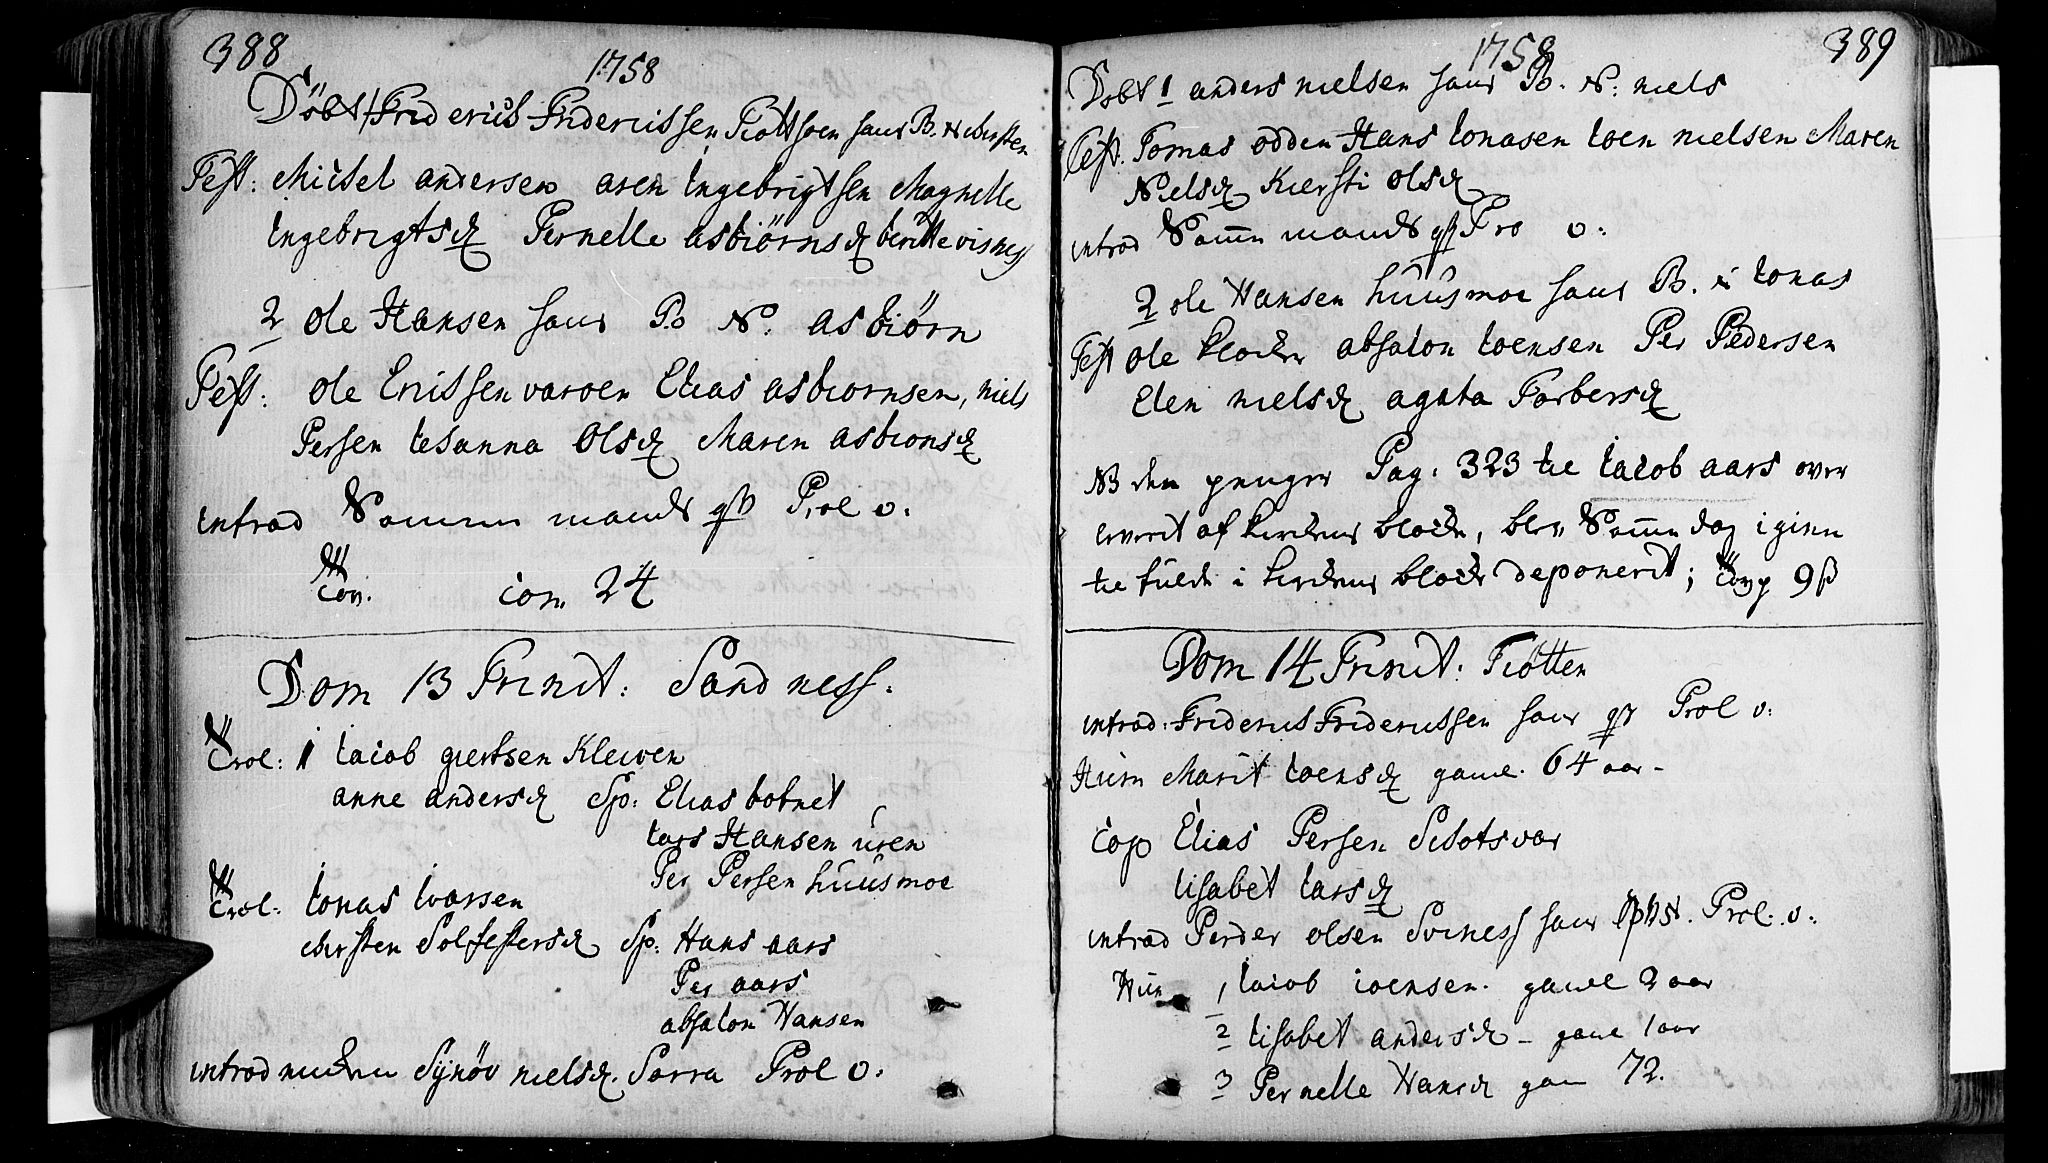 388
1758
Döbt 1 Friderich Friderichssen Tiøtt soen hans B. N. Chirsten
Test: Michel andersen aren Ingebrigtsen Magnelle
Ingebrigtsd Pernelle asbiörnsd beritte visnes
2 ole Hansen hans B. N. asbiörn
Test: ole Erichssen varoen Elias asbiornsen, niels
Persen Iohanna Olsd Maren asbionsd
introd Samme mands qst Prol o.
Con. ion. 24
Dom 13 Trinit: Sandness.
Trol: 1 Iacob giertsen Kleiven
anne andersd Sp: Elias botnet
Lars Hansen uren
Per Persen huusmoe
Trol: Ionas Ivarsen
chirsten Solfestersd Sp: Hans aars
Per aars
absalon Hansen
introd Synöv nielsd. Sarra Prol o.
1758
389
Dobt 1 anders nielsen hans B. N: niels
Test. Tomas odden Hans Ionasen Ioen nielsen Maren
Nielsd Kiersti olsd
introd Samme mands qst Pro o:
2 ole Hansen huusmoe hans B. N Ionas
Test ole klocker absalon Ioensen Per Pedersen
Elen nielsd agata Torbersd
NB den penger Pag: 323 til Iacob aars over
leverit af kirckens block, blev Samme dag igien
til fulde i kirckens block deponerit; 9 ß
Dom 14 Trinit: Tiøtten
introd: Friderich Friderichssen hans qst Prol o:
Hum Marit Ioensd gamel. 64 aar -
Cop Elias Persen Schotsvær
Lisabet Larsd
introd Perder olsen Sviness hans qvist. Prol. o.
Hum 1 Iacob ioensen. gamel 2 aar
2 Lisabet andersd - game 1 aar
3 Pernelle Hansd gam 72.